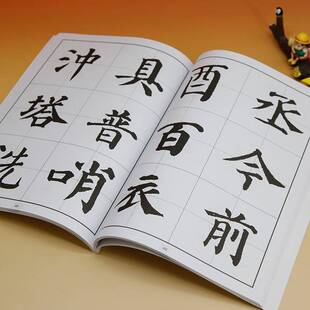 沖具
塔普
洗哨
酉丞
百今
衣前